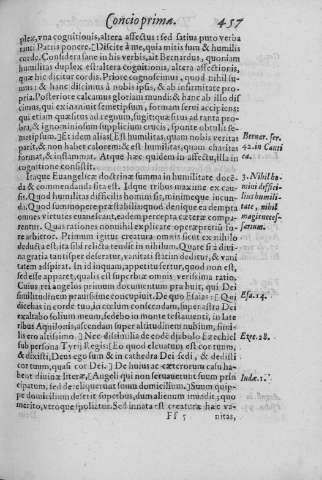 Concio prima. 457
plex, vna cognitionis, altera affectus: sed satius puto verba
Patris ponere. [Discite à me, quia mitis sum & humilis
corde. Considera sane in his verbis, ait Bernardus, quoniam
humilitas duplex est: altera cognitionis, altera affectionis,
quæ hîc dicitur cordis. Priore cognoscimus, quod nihil su-
mus: & hanc discimus à nobis ipsis, & ab infirmitate pro-
pria. Posteriore calcamus gloriam mundi: & hanc ab illo dis-
cimus, qui exinaniuit semetipsum, formam serui accipiens:
qui etiam quæsitus ad regnum, fugit; quæsitus ad tanta pro-
bra, & ignominiosum supplicium crucis, sponte obtulit se-
metipsum. [Et idem alias] Est humilitas, quam nobis veritas
parit, & non habet calorem: & est humilitas, quam charitas
format, & inflammat. Atque hæc quidem in affectu, illa in
cognitione consistit.
Bernar. ser.
42. in Canti
ca.
Itaque Euangelicæ doctrinæ summa in humilitate docẽ-
da & commendanda sita est. Idque tribus maxime ex cau-
sis. Quod humilitas difficilis homini sit, minimeque iucun-
da. Quod summopere præstabilis: quod denique ea dempta
omnes virtutes euanescant, eadem percepta cæteræ compa-
rentur. Quas rationes nonnihil explicare operæpretiũ fu-
erit arbitror. Primum igitur creatura omnis sicut ex nihilo
deducta est, ita sibi relicta tendit in nihilum. Quare si à diui-
na gratia tantisper deseratur, vanitati statim deditur, & vani
tatem adspirat. In id inquam, appetitu fertur, quod non est,
sed esse apparet, qualis est superbia: omnis verissima ratio.
Cuius rei angelus primum documentum præbuit, qui Dei
similitudinem præsumse concupiuit. De quo Esaias: [Qui
dicebas in corde tuo, in cœlum conscendam, super astra Dei
exaltabo solium meum, sedebo in monte testamenti, in late
ribus Aquilonis, ascendam super altitudinem nubium, simi-
lis ero altissimo. [Nec dissimilia de eodẽ diabolo Ezechiel
sub persona Tyrij Regis: [Eo quod eleuatum est cor tuum,
& dixisti, Deus ego sum & in cathedra Dei sedi, & dedisti
cor tuum, quasi cor Dei. [De huius ac cæterorum casu ha-
bent diuinæ literæ, [Angeli qui non seruauerunt suum prin
cipatum, sed dereliquerunt suum domicilium. [Suum quip-
pe domicilium deserit superbus, dum alienum inuadit; quo
merito, vtroque spoliatur. Sed innata est creaturæ hæc va-
3. Nihil ho-
mini diffici-
lius humili-
tate, nihil
magis neces-
sarium.
Esa. 14.
Eze. 28.
Iudæ. 1.
Ff 5 nitas,